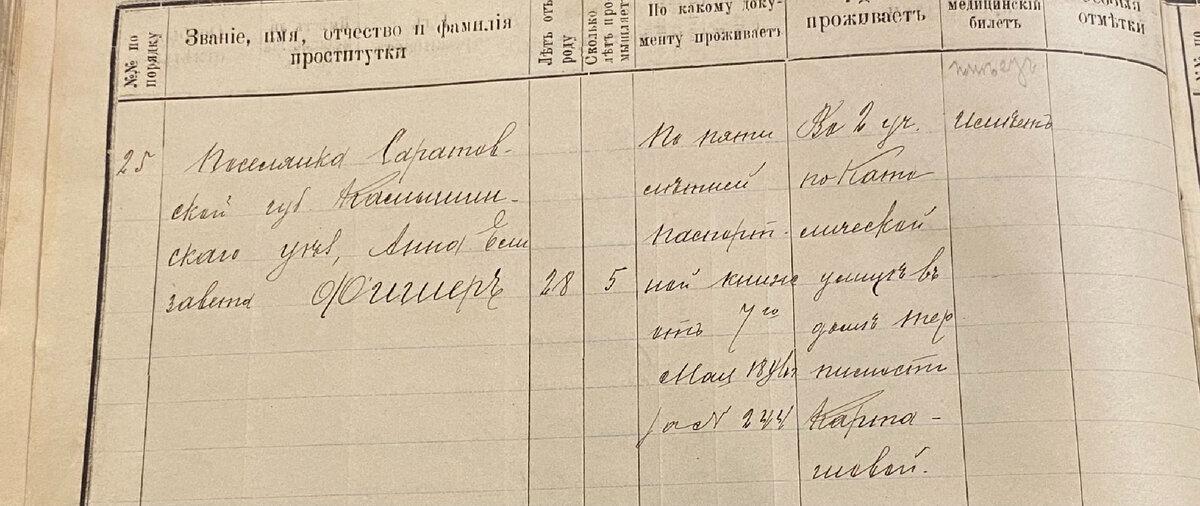 №№ по порядку
Званіе, имя, отчество и фамилія проститутки
Лѣтъ отъ роду
Сколько лѣтъ про- мышляетъ
По какому доку- менту проживаетъ
проживаетъ
медицинскій билетъ
отмѣтки
25
Поселянка Саратов-
ской губ. Камышин-
скаго уѣз, Анна Ели
завета Фишеръ
28
5
По пяти
лѣтней
паспорт-
ной книж
отъ 7го
Мая
за № 244
Во 2 уч.
по Като
лической
улицѣ въ
домѣ тер
пимости
Карта-
шовой.
Имѣетъ